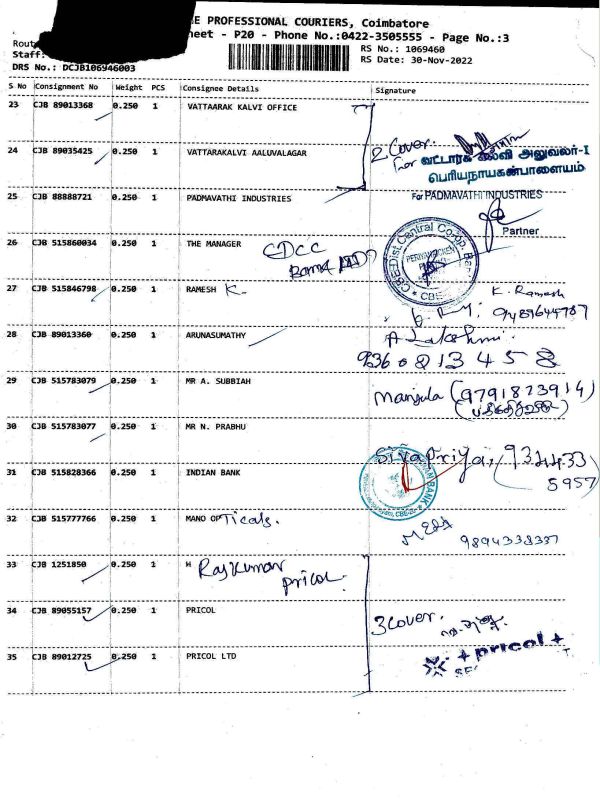 E PROFESSIONAL COURIERS, Coimbatore
heet - P20 - Phone No.:0422-3505555 - Page No.:3
Rout
Staff:
DRS No.: DCJB106946003
RS No.: 1069460
RS Date: 30-Nov-2022
S No Consignment No Weight PCS Consignee Details Signature
23 CJB 89013368 0.250 1 VATTAARAK KALVI OFFICE
2 Cover
for வட்டாரக் கல்வி அலுவலர்-I
பெரியநாயக்கன்பாளையம்
24 CJB 89035425 0.250 1 VATTARAKALVI AALUVALAGAR
25 CJB 88888721 0.250 1 PADMAVATHI INDUSTRIES For PADMAVATHI INDUSTRIES
Partner
26 CJB 515860034 0.250 1 THE MANAGER CDCC
CBE Dist Central Co-op. Ban
27 CJB 515846798 0.250 1 RAMESH K K. Ramesh
9489644787
28 CJB 89013360 0.250 1 ARUNASUMATHY A Lakshmi
9360813458
29 CJB 515783079 0.250 1 MR A. SUBBIAH Manjula (9791823914)
30 CJB 515783077 0.250 1 MR N. PRABHU Sivapriya, (934433
5957)
31 CJB 515828366 0.250 1 INDIAN BANK
32 CJB 515777766 0.250 1 MANO OPTicals.
9894338337
33 CJB 1251850 0.250 1 H Rajkumar
pricol.
34 CJB 89055157 0.250 1 PRICOL 3 cover.
35 CJB 89012725 0.250 1 PRICOL LTD pricol